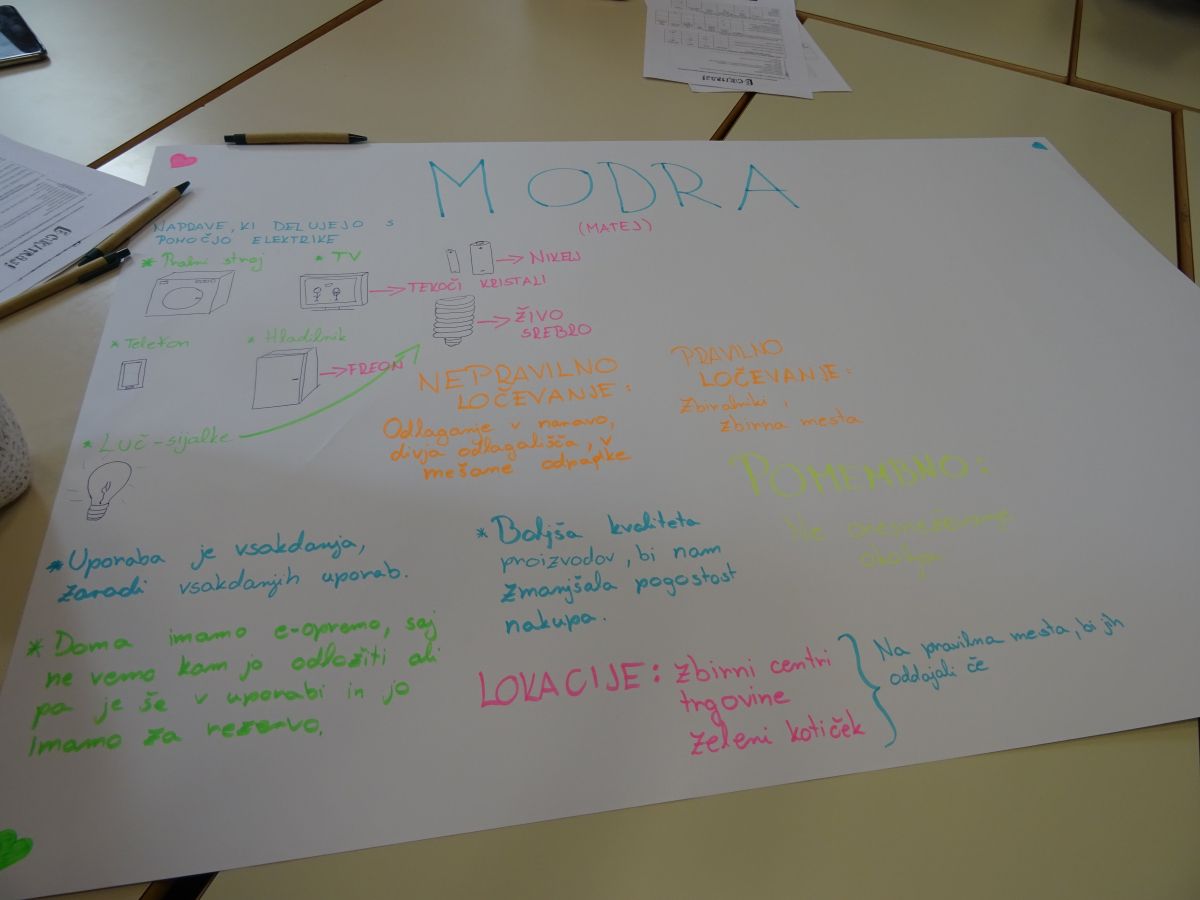 MODRA
(MATEJ)
NAPRAVE, KI DELUJEJO S
POMOČJO ELEKTRIKE
* Pralni stroj
* TV
→ TEKOČI KRISTALI
→ NIKELJ
→ ŽIVO
SREBRO
* Telefon
* Hladilnik
→ FREON
* LUČ - sijalke
NEPRAVILNO
LOČEVANJE:
Odlaganje v naravo,
divja odlagališča, v
mešame odpadke
PRAVILNO
LOČEVANJE:
Zbiralniki,
zbirna mesta
POMEMBNO:
Ne onesnaževanje
okolja
* Uporaba je vsakdanja,
zaradi vsakdanjih uporab.
* Boljša kvaliteta
proizvodov, bi nam
zmanjšala pogostost
nakupa.
* Doma imamo e-opremo, saj
ne vemo kam jo odložiti ali
pa je še v uporabi in jo
imamo za rezervo.
LOKACIJE: zbirni centri
trgovine
zeleni kotiček
Na pravilna mesta, bi jih
oddajali če